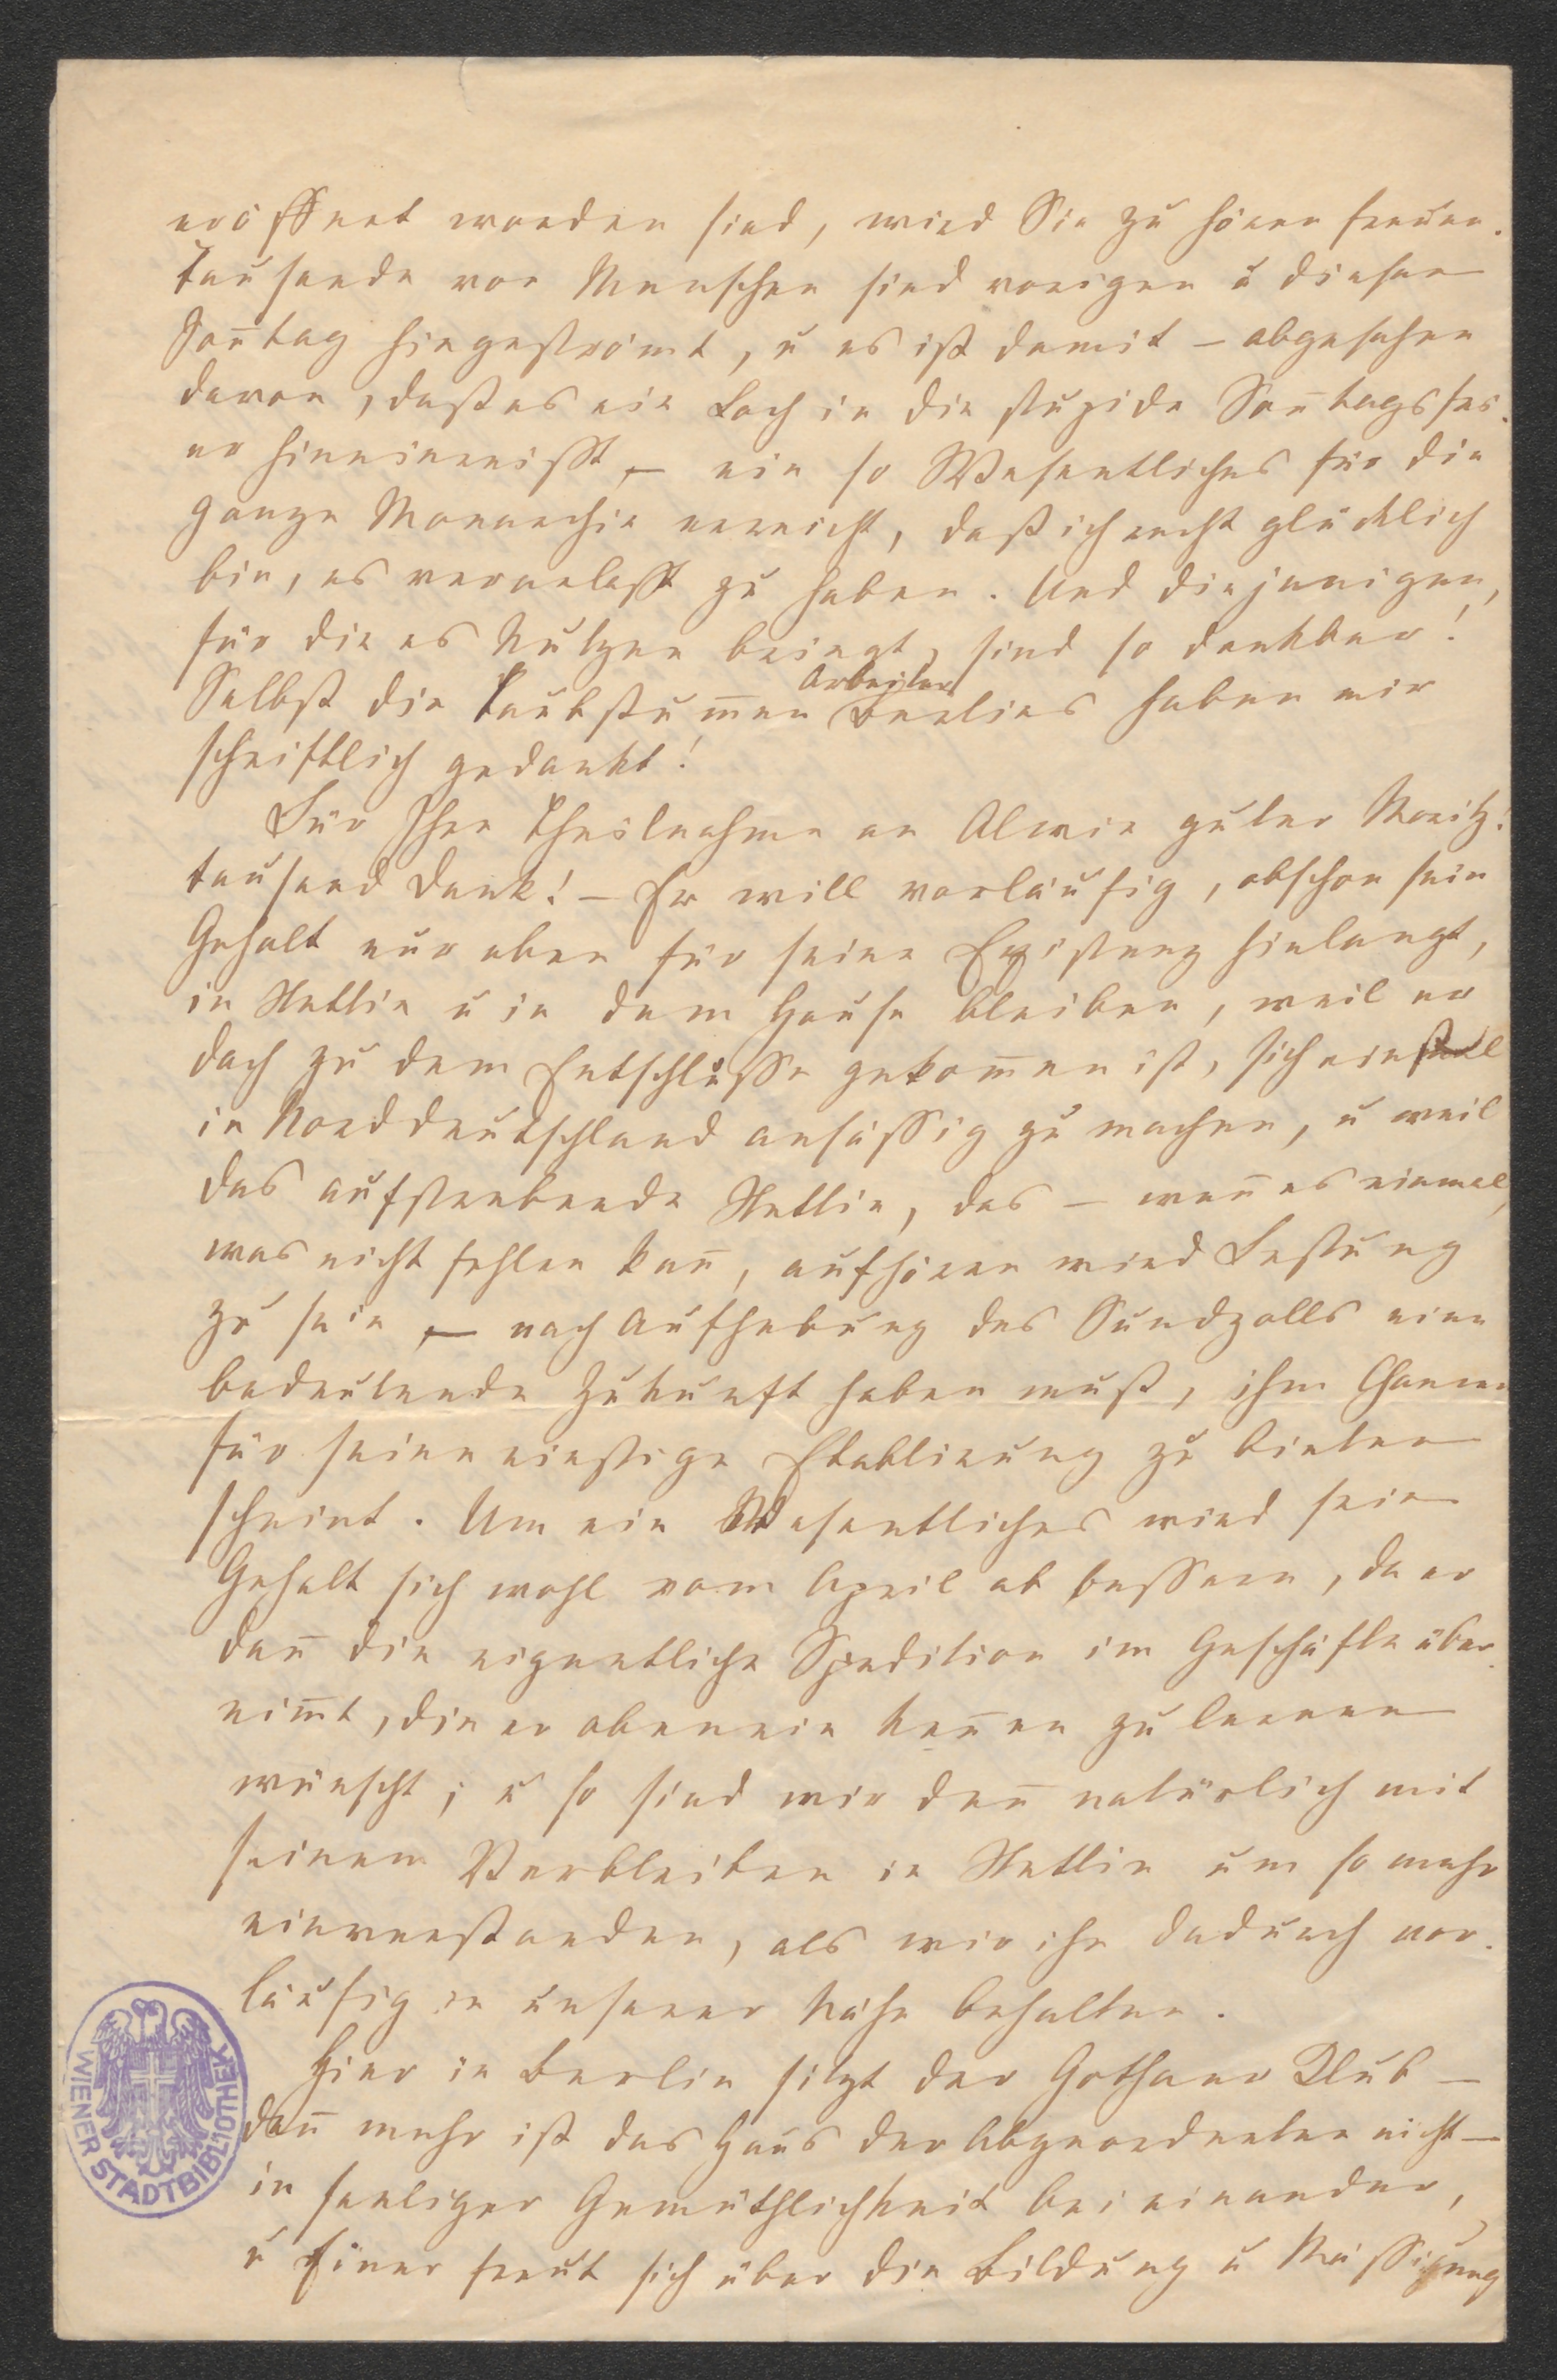 eröffnet worden sind, wird Sie zu hören freuen.
Tausende von Menschen sind vorigen u diesen
Son̄tag hingeströmt, u es ist damit – abgesehen
davon, daß es ein Loch in die stupide Son̄tagsfei-
er hineinreißt, – ein so Wesentliches für die
ganze Monarchie erreicht, daß ich recht glücklich
bin, es veranlaßt zu haben. Und diejenigen,
für die es Nutzen bringt, sind so dankbar!
Arbeiter
Selbst die Taubstum̄en Berlins haben mir
schriftlich gedankt!
Für Ihre Theilnahme an Alwin guter Moritz!
tausend Dank! – Er will vorläufig, obschon sein
Gehalt nur eben für seine Existenz hinlangt,
in Stettin u in dem Hause bleiben, weil er
doch zu dem Entschlusse gekom̄en ist, sich einst
in Norddeutschland ansässig zu machen, u weil
das aufstrebende Stettin, das – wen̄ es einmal,
was nicht fehlen kan̄, aufhören wird Festung
zu sein, – nach Aufhebung des Sundzolls eine
bedeutende Zukunft haben muß, ihm Chancen
für seine einstige Etablirung zu bieten
scheint. Um ein Wesentliches wird sein
Gehalt sich wohl vom April ab bessern, da er
dan̄ die eigentliche Spedition im Geschäfte über-
nim̄t, die er obenein ken̄en zu lernen
wünscht; u so sind wir den̄ natürlich mit
seinem Verbleiben in Stettin um so mehr
einverstanden, als wir ihn dadurch vor-
läufig in unserer Nähe behalten.
Hier in Berlin sitzt der Gothaer Klub –
den̄ mehr ist das Haus der Abgeordneten nicht –
in seeliger Gemüthlichkeit bei einander,
u Einer freut sich über die Bildung u Mässigung
WIENER STADTBIBLIOTHEK